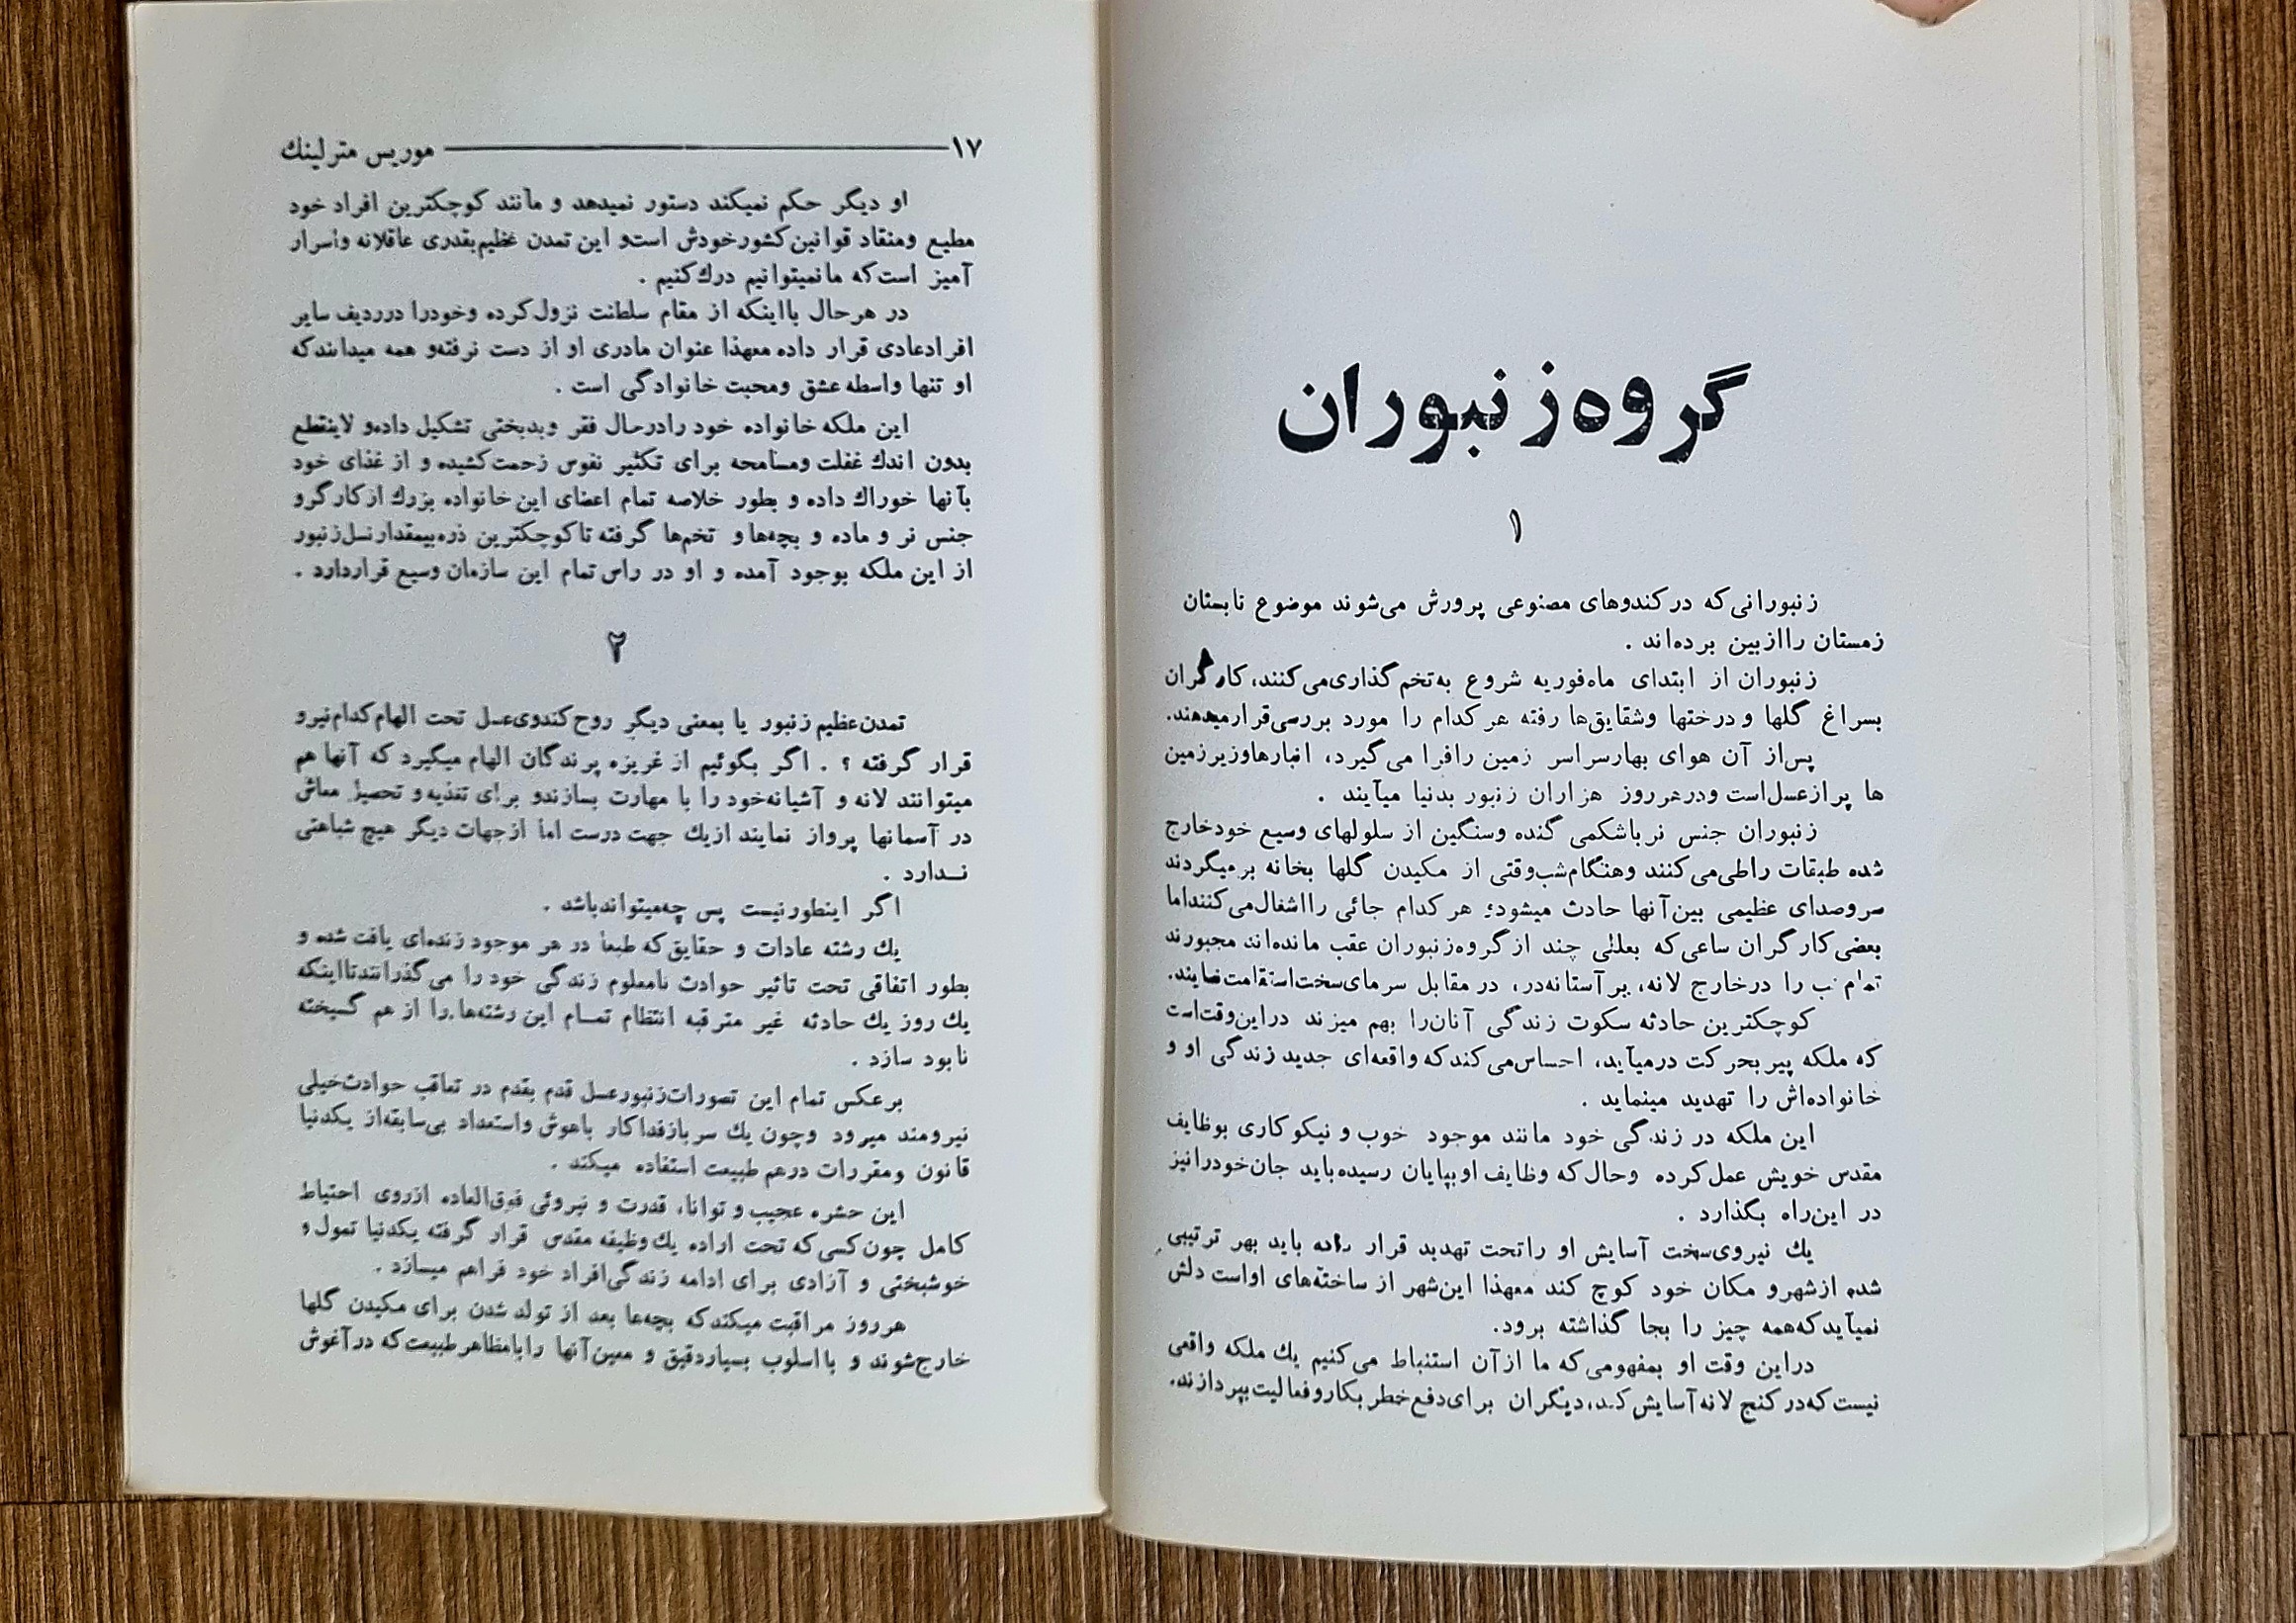 گروه زنبوران
۱
زنبورانی‌که در کندوهای مصنوعی پرورش می‌شوند موضوع تابستان
زمستان را از بین برده‌اند .
زنبوران از ابتدای ماه فوریه شروع به تخم گذاری می‌کنند، کارگران
بسراغ گلها و درختها و شقایق‌ها رفته هر کدام را مورد بررسی قرار میدهند.
پس از آن هوای بهار سراسر زمین را فرا می‌گیرد، انبارها و زیر زمین
ها پر از عسل است و در هر روز هزاران زنبور بدنیا میآیند .
زنبوران جنس نر باشکمی گنده و سنگین از سلولهای وسیع خود خارج
شده طبقات را طی می‌کنند و هنگام شب وقتی از مکیدن گلها بخانه بر میگردند
سر و صدای عظیمی بین آنها حادث میشود؛ هر کدام جائی را اشغال می‌کنند اما
بعضی کارگران ساعی که بعللی چند از گروه زنبوران عقب مانده‌اند مجبورند
تمام را در خارج لانه، بر آستانه در، در مقابل سرمای سخت استقامت نمایند.
کوچکترین حادثه سکوت زندگی آنان را بهم میزند در این وقت است
که ملکه پیر بحرکت درمیآید، احساس می‌کند که واقعه‌ای جدید زندگی او و
خانواده‌اش را تهدید مینماید .
این ملکه در زندگی خود مانند موجود خوب و نیکوکاری بوظایف
مقدس خویش عمل کرده و حال که وظایف او بپایان رسیده باید جان خود را نیز
در این راه بگذارد .
یك نیروی سخت آسایش او را تحت تهدید قرار داده باید بهر ترتیبی
شده از شهر و مکان خود کوچ کند معهذا این شهر از ساخته‌های او است دلش
نمیآید که همه چیز را بجا گذاشته برود.
در این وقت او بمفهومی که ما از آن استنباط می‌کنیم یك ملکه واقعی
نیست که در کنج لانه آسایش کند، دیگران برای دفع خطر بکار و فعالیت بپردازند.
۱۷ موریس مترلینك
او دیگر حکم نمیکند دستور نمیدهد و مانند کوچکترین افراد خود
مطیع و منقاد قوانین کشور خودش است و این تمدن عظیم بقدری عاقلانه و اسرار
آمیز است که ما نمیتوانیم درك کنیم .
در هر حال با اینکه از مقام سلطنت نزول کرده و خود را در ردیف سایر
افراد عادی قرار داده معهذا عنوان مادری او از دست نرفته و همه میدانند که
او تنها واسطه عشق و محبت خانوادگی است .
این ملکه خانواده خود را در حال فقر و بدبختی تشکیل داده و لاینقطع
بدون اندك غفلت و مسامحه برای تکثیر نفوس زحمت کشیده و از غذای خود
بآنها خوراك داده و بطور خلاصه تمام اعضای این خانواده بزرك از کارگر و
جنس نر و ماده و بچه‌ها و تخم‌ها گرفته تا کوچکترین ذره بیمقدار نسل زنبور
از این ملکه بوجود آمده و او در راس تمام این سازمان وسیع قرار دارد .
۲
تمدن عظیم زنبور یا بمعنی دیگر روح کندوی عسل تحت الهام کدام نیرو
قرار گرفته ؟ . اگر بگوئیم از غریزه پرندگان الهام میگیرد که آنها هم
میتوانند لانه و آشیانه خود را با مهارت بسازند و برای تغذیه و تحصیل معاش
در آسمانها پرواز نمایند از یك جهت درست اما از جهات دیگر هیچ شباهتی
نــدارد .
اگر اینطور نیست پس چه میتواند باشد .
یك رشته عادات و حقایق که طبعا در هر موجود زنده‌ای یافت شده و
بطور اتفاقی تحت تاثیر حوادث نامعلوم زندگی خود را می‌گذرانند تا اینکه
یك روز یك حادثه غیر مترقبه انتظام تمــام این رشته‌ها را از هم گسیخته
نابود سازد .
برعکس تمام این تصورات زنبور عسل قدم بقدم در تعاقب حوادث خیلی
نیرومند میرود و چون یك سرباز فداکار باهوش و استعداد بی‌سابقه از یکدنیا
قانون و مقررات درهم طبیعت استفاده میکند .
این حشره عجیب و توانا، قدرت و نیروئی فوق‌العاده از روی احتیاط
کامل چون کسی که تحت اراده یك وظیفه مقدس قرار گرفته یکدنیا تمول و
خوشبختی و آزادی برای ادامه زندگی افراد خود فراهم میسازد .
هر روز مراقبت میکند که بچه‌ها بعد از تولد شدن برای مکیدن گلها
خارج شوند و با اسلوب بسیار دقیق و معین آنها را با مظاهر طبیعت که در آغوش